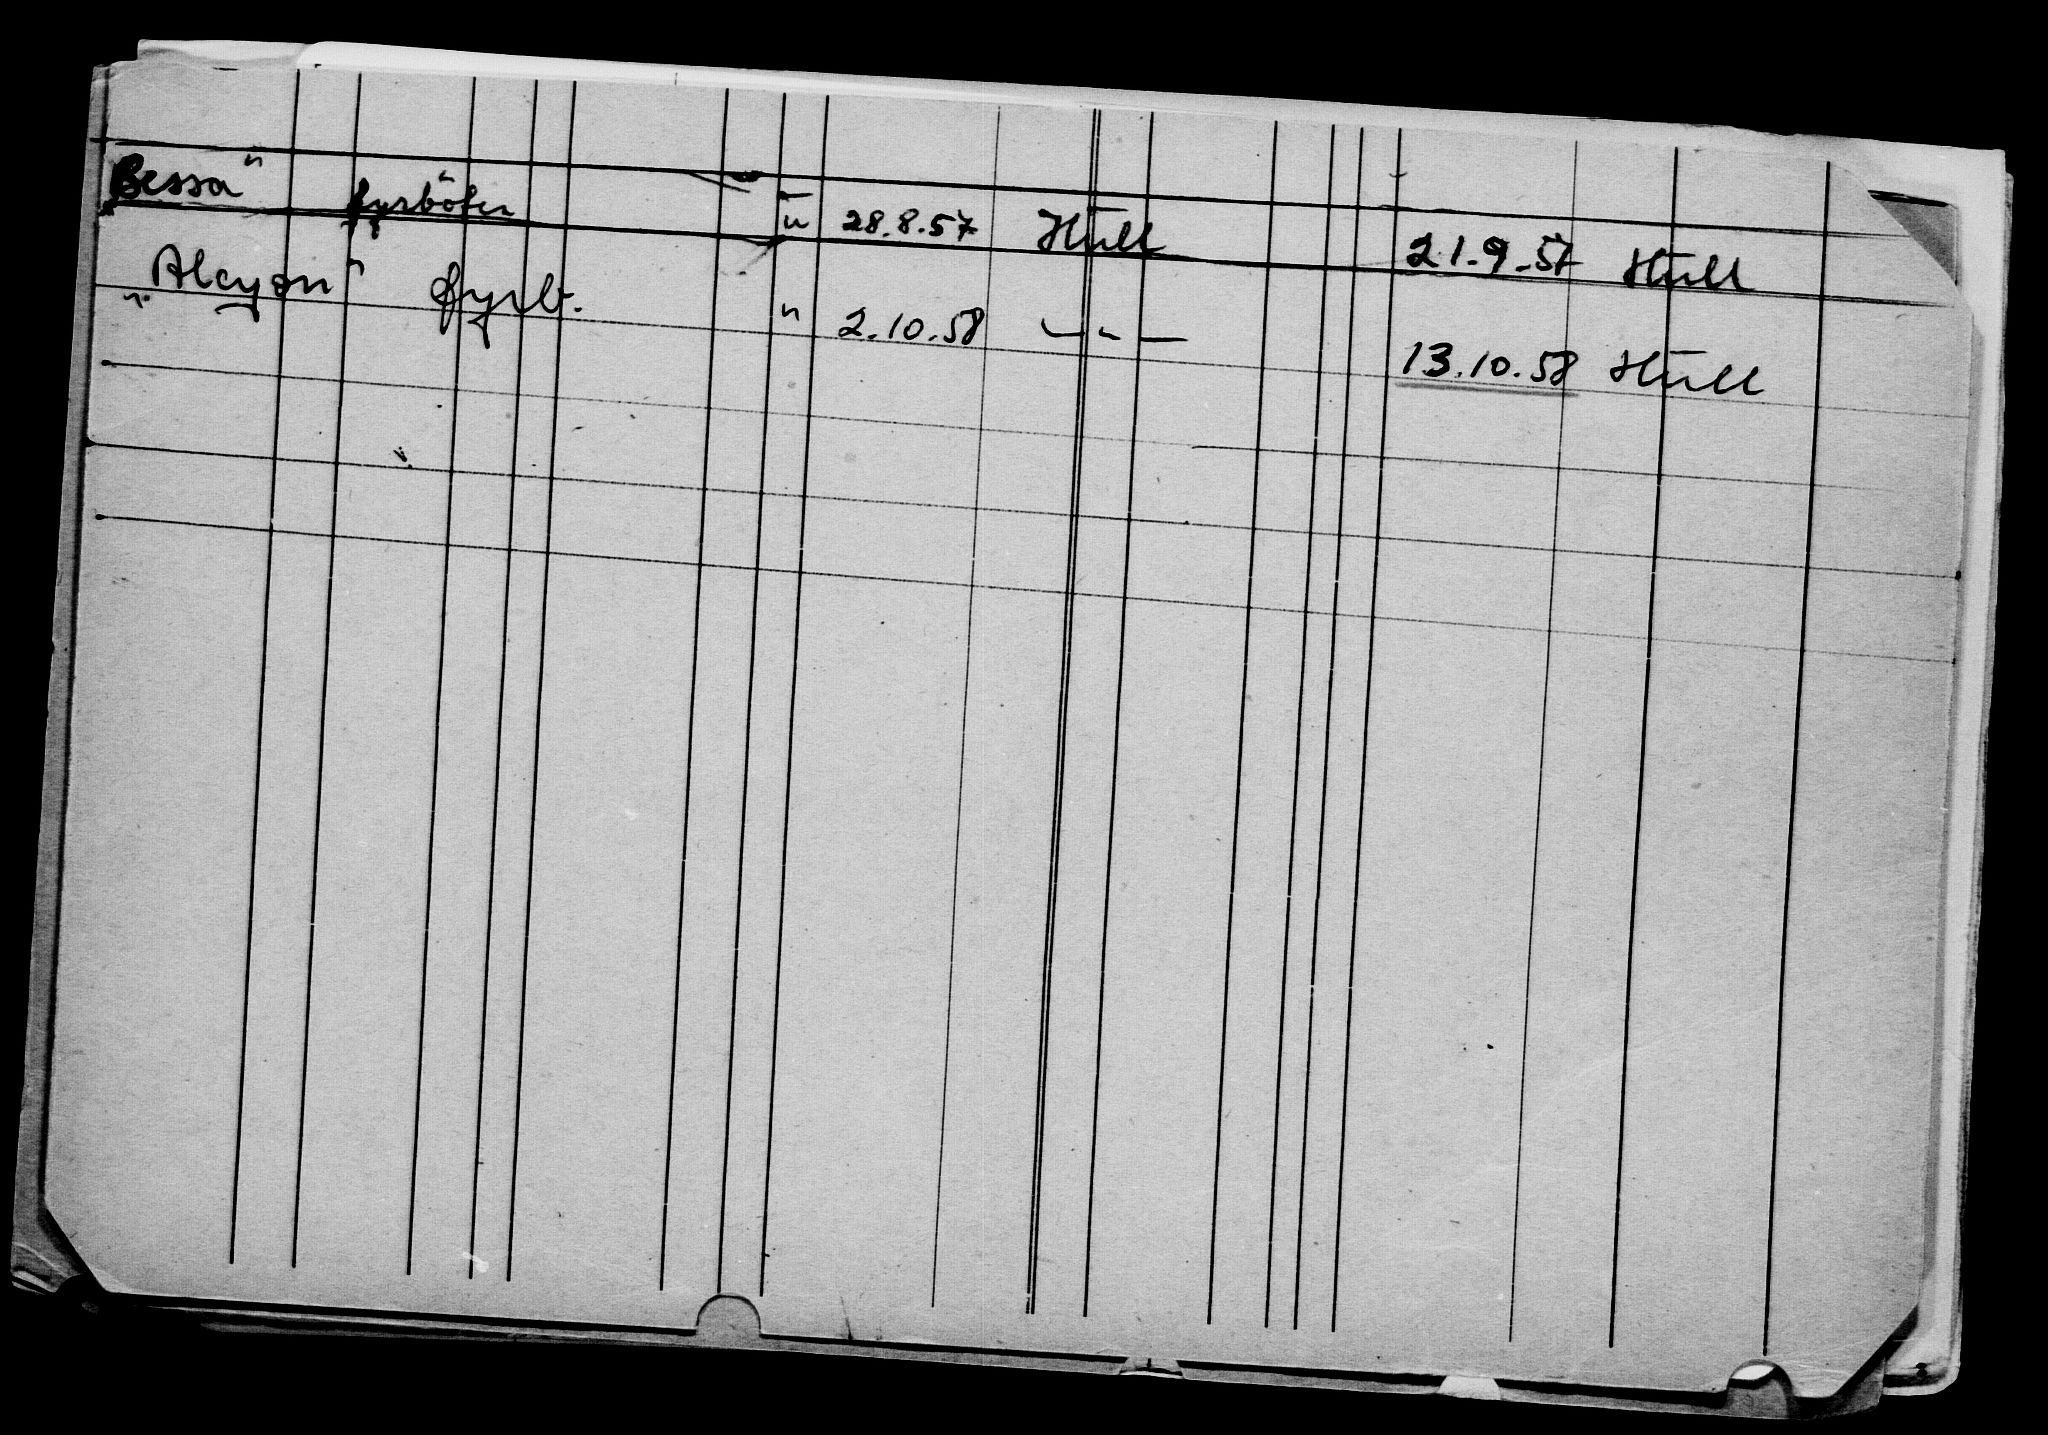 Bessa" fyrböter " 28.8.57 Hull 21.9.57 Hull
"Alcyon" fyrb. " 2.10.58 — " — 13.10.58 Hull